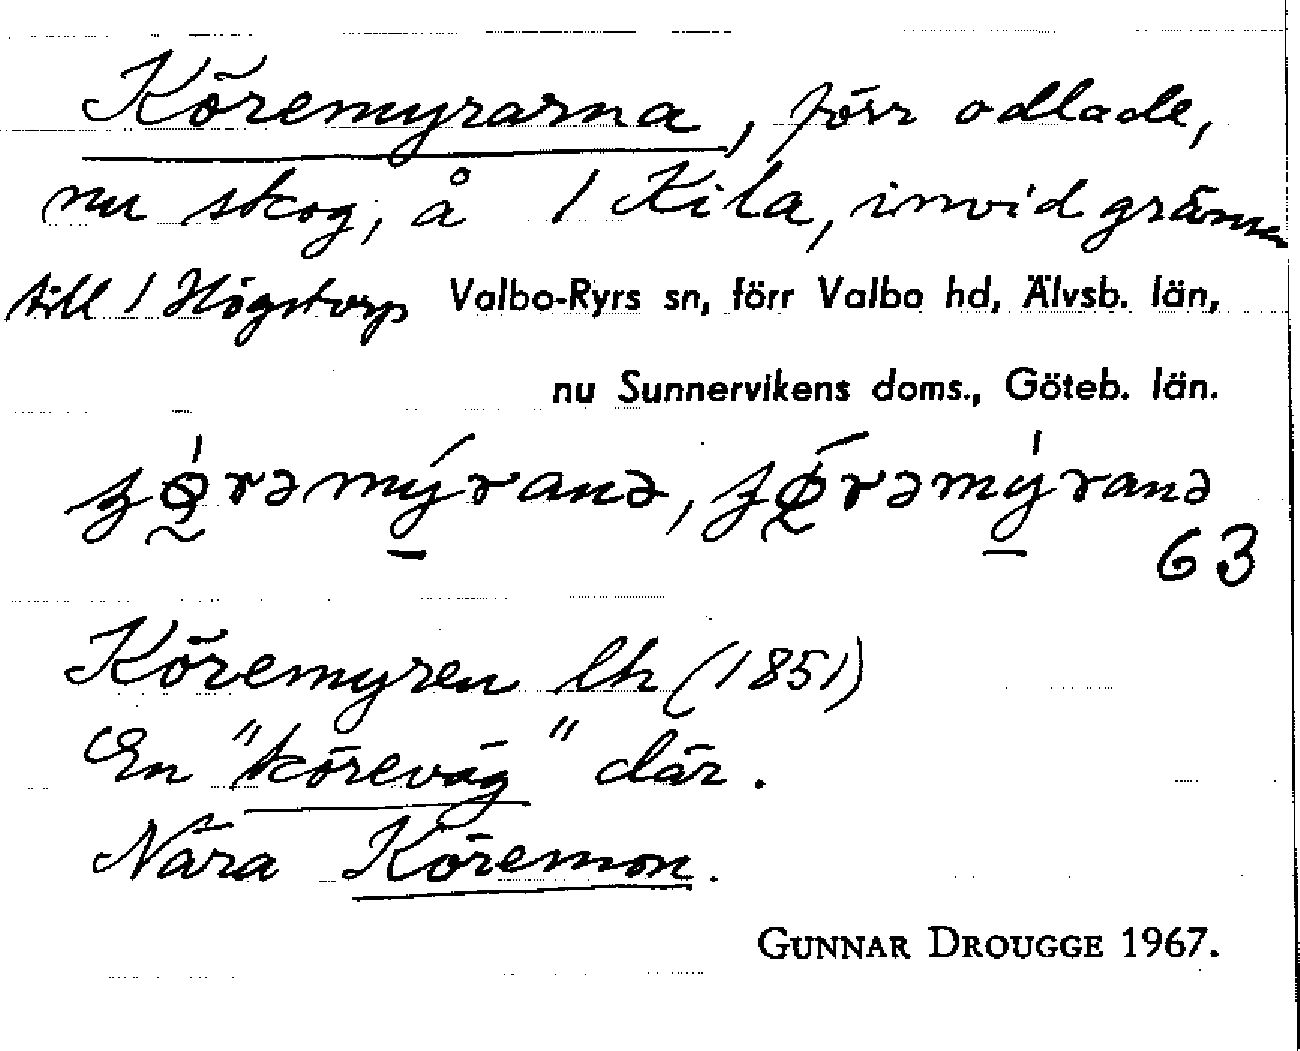 Köremyrarna, förr odlade,
nu skog, å 1 Kila, invid gränsen
till 1 Högstorp Valbo-Ryrs sn, förr Valbo hd, Älvsb. län,
nu Sunnervikens doms., Göteb. län.
63
Köremyren lh (1851)
En "köreväg" där.
Nära Köremon.
GUNNAR DROUGGE 1967.